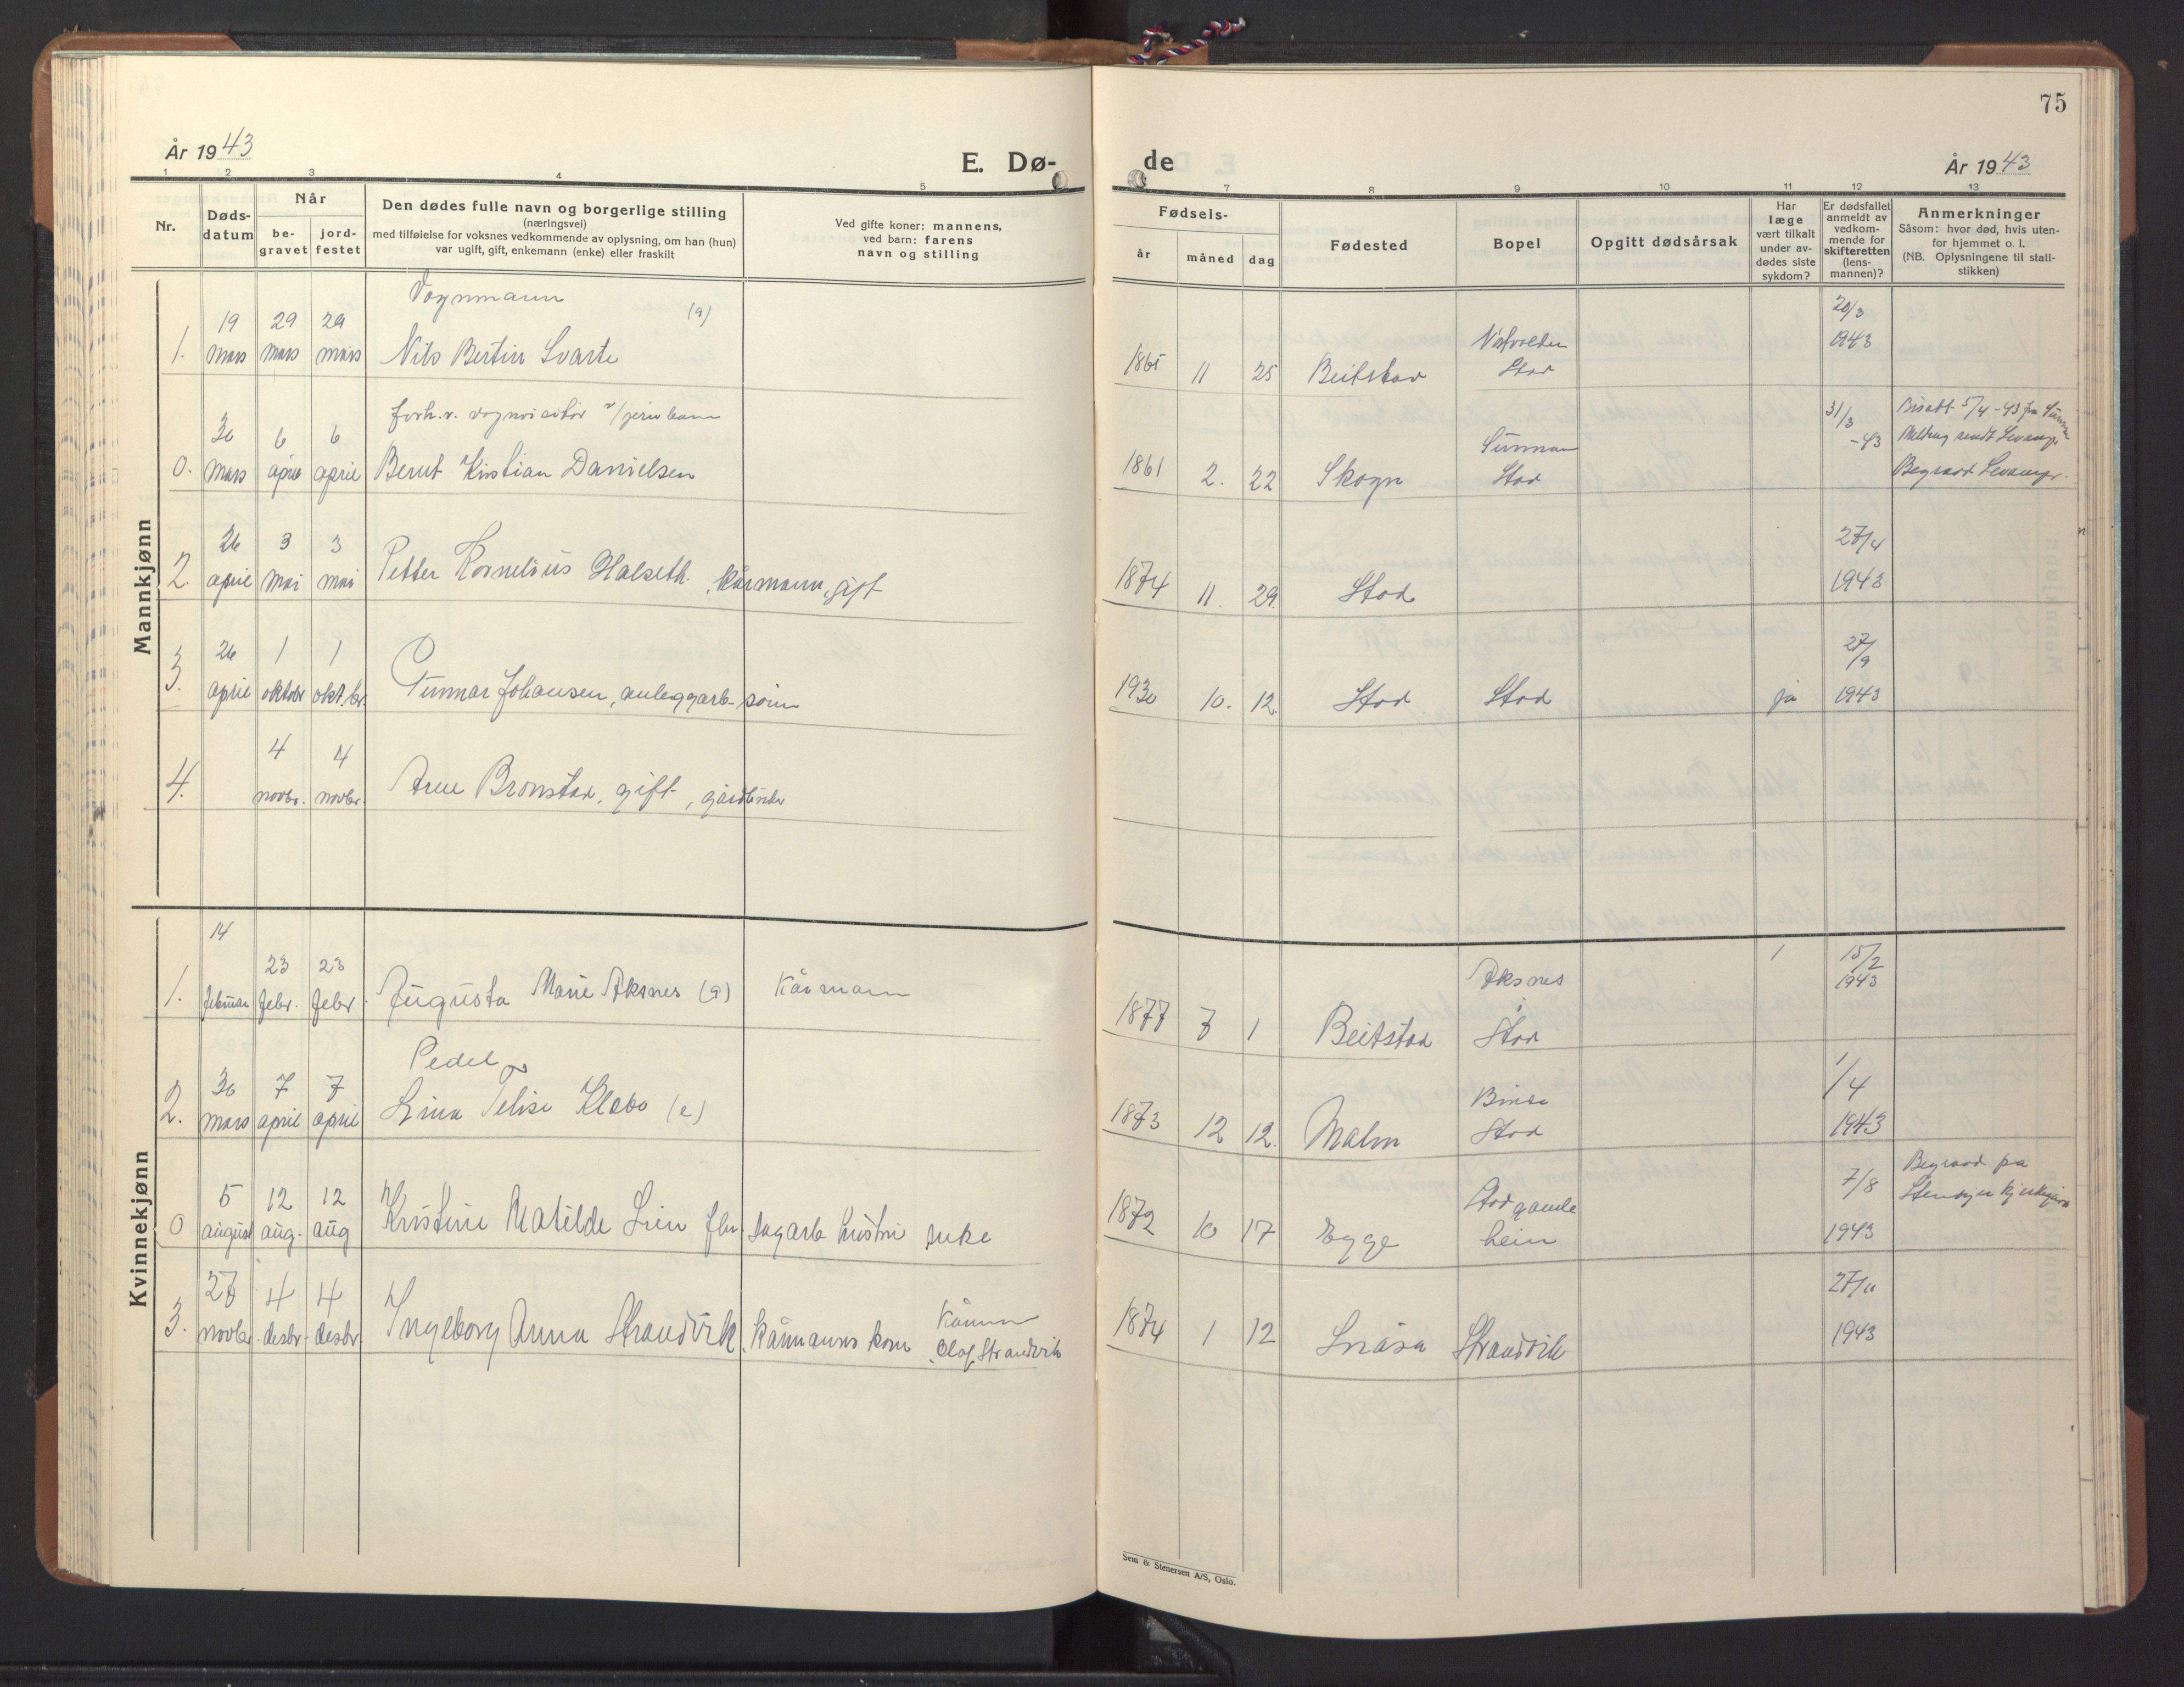 75
År 1943
E. Dø-
de
År 1943
1 2 3 4 5
7 8 9 10 11 12 13
Nr.
Døds-
datum
Når
be-
gravet
jord-
festet
Den dødes fulle navn og borgerlige stilling
(næringsvei)
med tilføielse for voksnes vedkommende av oplysning, om han (hun)
var ugift, gift, enkemann (enke) eller fraskilt
Ved gifte koner: mannens,
ved barn: farens
navn og stilling
Fødsels-
år
måned
dag
Fødested
Bopel
Opgitt dødsårsak
Har
læge
vært tilkalt
under av-
dødes siste
sykdom?
Er dødsfallet
anmeldt av
vedkom-
mende for
skifteretten
(lens-
mannen)?
Anmerkninger
Såsom: hvor død, hvis uten-
for hjemmet o. l.
(NB. Oplysningene til stati-
stikken)
Mannkjønn
Vognmann
(g)
19 29 29
1. mars mars mars Nils Bertin Svarte
20/3
1943
1865 11 25 Beitstad
Stod
30 6 6
0. mars april april Bernt Kristian Danielsen
31/3
-43
1861 2. 22 Skogn
Sunnan
Stod
Bisatt 5/4-43 fra Sunnan
Melding sendt Levanger
Begravd Levanger.
26 3 3
2. april mai mai Petter Kornelius Halseth. kårmann, gift
27/4
1943
1874 11. 29. Stod
26 1 1
3. april oktobr okt.br. Gunnar Johansen, anleggarb. sønn
27/9
1943
1930 10. 12. Stod Stod ja
4 4
4. novbr. novbr. Arne Brønstad, gift, gårdbruker
Kvinnekjønn
14
23 23
1. februar febr. febr. Augusta Marie Aksnes (g) Kårmann
1877 7 1 Beitstad
Aksnes
i
Stod
1
15/2
1943
Pedel
30 7 7
2. mars april april Lina Telise Klæbo (e)
1873 12 12. Malm
Binde
Stod
1/4
1943
5 12 12
0 august aug. aug Kristine Matilde Lien fhv. dagarb hustru enke
1872 10 17 Egge
Stod gamle
heim
7/8
1943
Begravd på
Steinkjer kjirkegård
27 4 4
3. novbr. desbr. desbr. Ingeborg Anna Strandvik, kårmanns kone
Kårmann
Olaf Strandvik
1874 1 12 Snåsa Strandvik
27/11
1943
Sem & Stenersen A/S, Oslo.